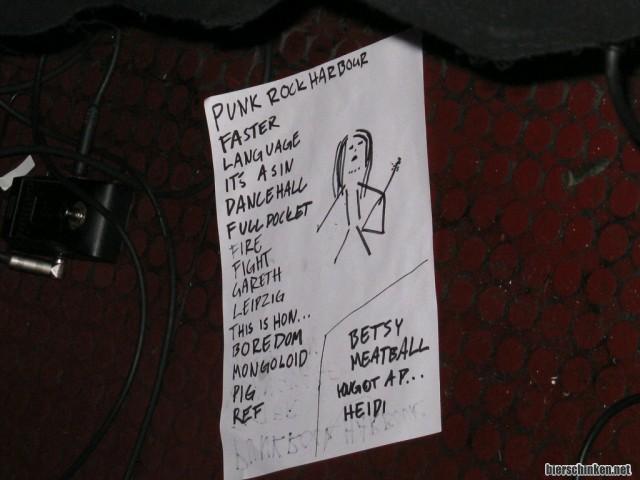 PUNK ROCK HARBOUR
FASTER
LANGUAGE
IT'S A SIN
DANCEHALL
FULL POCKET
FIRE
FIGHT
GARETH
LEIPZIG
THIS IS HON...
BOREDOM
MONGOLOID
PIG
REF
BETSY
MEATBALL
HEIDI
bierschinken.net